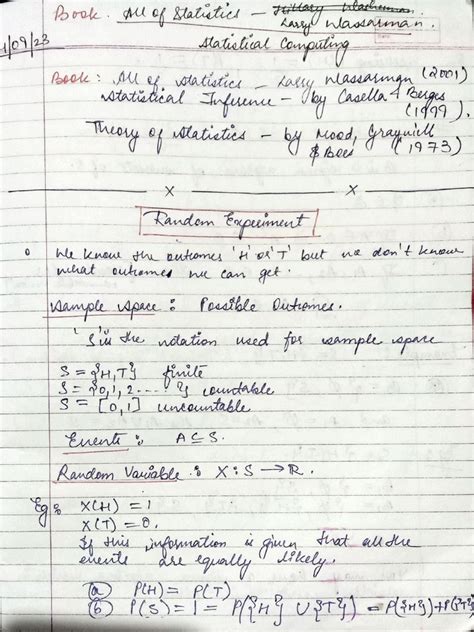 Book: All of Statistics – Larry Wassarman.
1/09/23
Statistical Computing
Book: All of statistics – Larry Wassarman (2001)
Statistical Inference – by Casella & Berges
(1999).
Theory of statistics – by Mood, Graywill
& Boes (1973)
x x
Random Experiment
We know the outcomes 'H' or 'T' but we don't know
what outcomes we can get.
Sample space: Possible Outcomes.
'S' is the notation used for sample space
S = {H,T} finite
S = {0,1,2....} countable
S = [0,1] uncountable
Events: A⊆S.
Random Variable: X: S → R.
Eg: X(H) = 1
X(T) = 0.
If this information is given that all the
events are equally likely.
(a) P(H) = P(T)
(b) P(S) = 1 = P({H} ∪ {T}) = P({H}) + P({T})